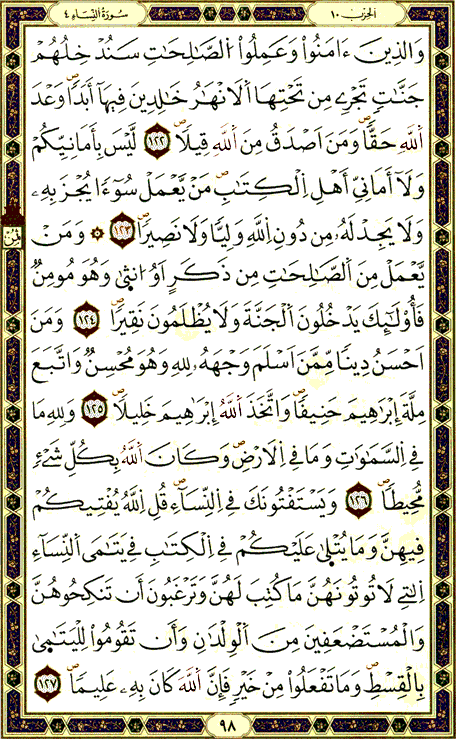 الحزب ١٠
سورة النساء ٤
وَالذِينَ ءَامَنُواْ وَعَمِلُواْ الصَّٰلِحَٰتِ سَنُدْخِلُهُمْ
جَنَّٰتٍ تَجْرِے مِن تَحْتِهَا اَلَانْهَٰرُ خَٰلِدِينَ فِيهَآ أَبَداٗ وَعْدَ
اَللَّهِ حَقّاٗ وَمَنَ اَصْدَقُ مِنَ اَللَّهِ قِيلاٗ ١٢٢ لَّيْسَ بِأَمَانِيِّكُمْ
وَلَآ أَمَانِيِّ أَهْلِ اِلْكِتَٰبِ مَنْ يَّعْمَلْ سُوٓءاٗ يُجْزَ بِهِۦ
وَلَا يَجِدْ لَهُۥ مِن دُونِ اِللَّهِ وَلِيّاٗ وَلَا نَصِيراٗ ١٢٣ ۞ وَمَنْ
يَّعْمَلْ مِنَ اَلصَّٰلِحَٰتِ مِن ذَكَرٍ اَوُ ا۟نث۪ىٰ وَهُوَ مُومِنٞ
فَأُوْلَٰٓئِكَ يَدْخُلُونَ اَلْجَنَّةَ وَلَا يُظْلَمُونَ نَقِيراٗ ١٢٤ وَمَنَ
اَحْسَنُ دِيناٗ مِّمَّنَ اَسْلَمَ وَجْهَهُۥ لِلهِ وَهُوَ مُحْسِنٞ وَاتَّبَعَ
مِلَّةَ إِبْرَٰهِيمَ حَنِيفاٗ وَاتَّخَذَ اَللَّهُ إِبْرَٰهِيمَ خَلِيلاٗ ١٢٥ وَلِلهِ مَا
فِے اِلسَّمَٰوَٰتِ وَمَا فِے اِلَارْضِ وَكَانَ اَللَّهُ بِكُلِّ شَےْءٖ
مُّحِيطاٗ ١٢٦ وَيَسْتَفْتُونَكَ فِے اِلنِّسَآءِ قُلِ اِللَّهُ يُفْتِيكُمْ
فِيهِنَّ وَمَا يُتْل۪ىٰ عَلَيْكُمْ فِے اِلْكِتَٰبِ فِے يَتَٰمَى اَلنِّسَآءِ
اِلٰتِے لَا تُوتُونَهُنَّ مَا كُتِبَ لَهُنَّ وَتَرْغَبُونَ أَن تَنكِحُوهُنَّ
وَالْمُسْتَضْعَفِينَ مِنَ اَلْوِلْدَٰنِ وَأَن تَقُومُواْ لِلْيَتَٰم۪ىٰ
بِالْقِسْطِ وَمَا تَفْعَلُواْ مِنْ خَيْرٖ فَإِنَّ اَللَّهَ كَانَ بِهِۦ عَلِيماٗ ١٢٧
ثمن
٩٨